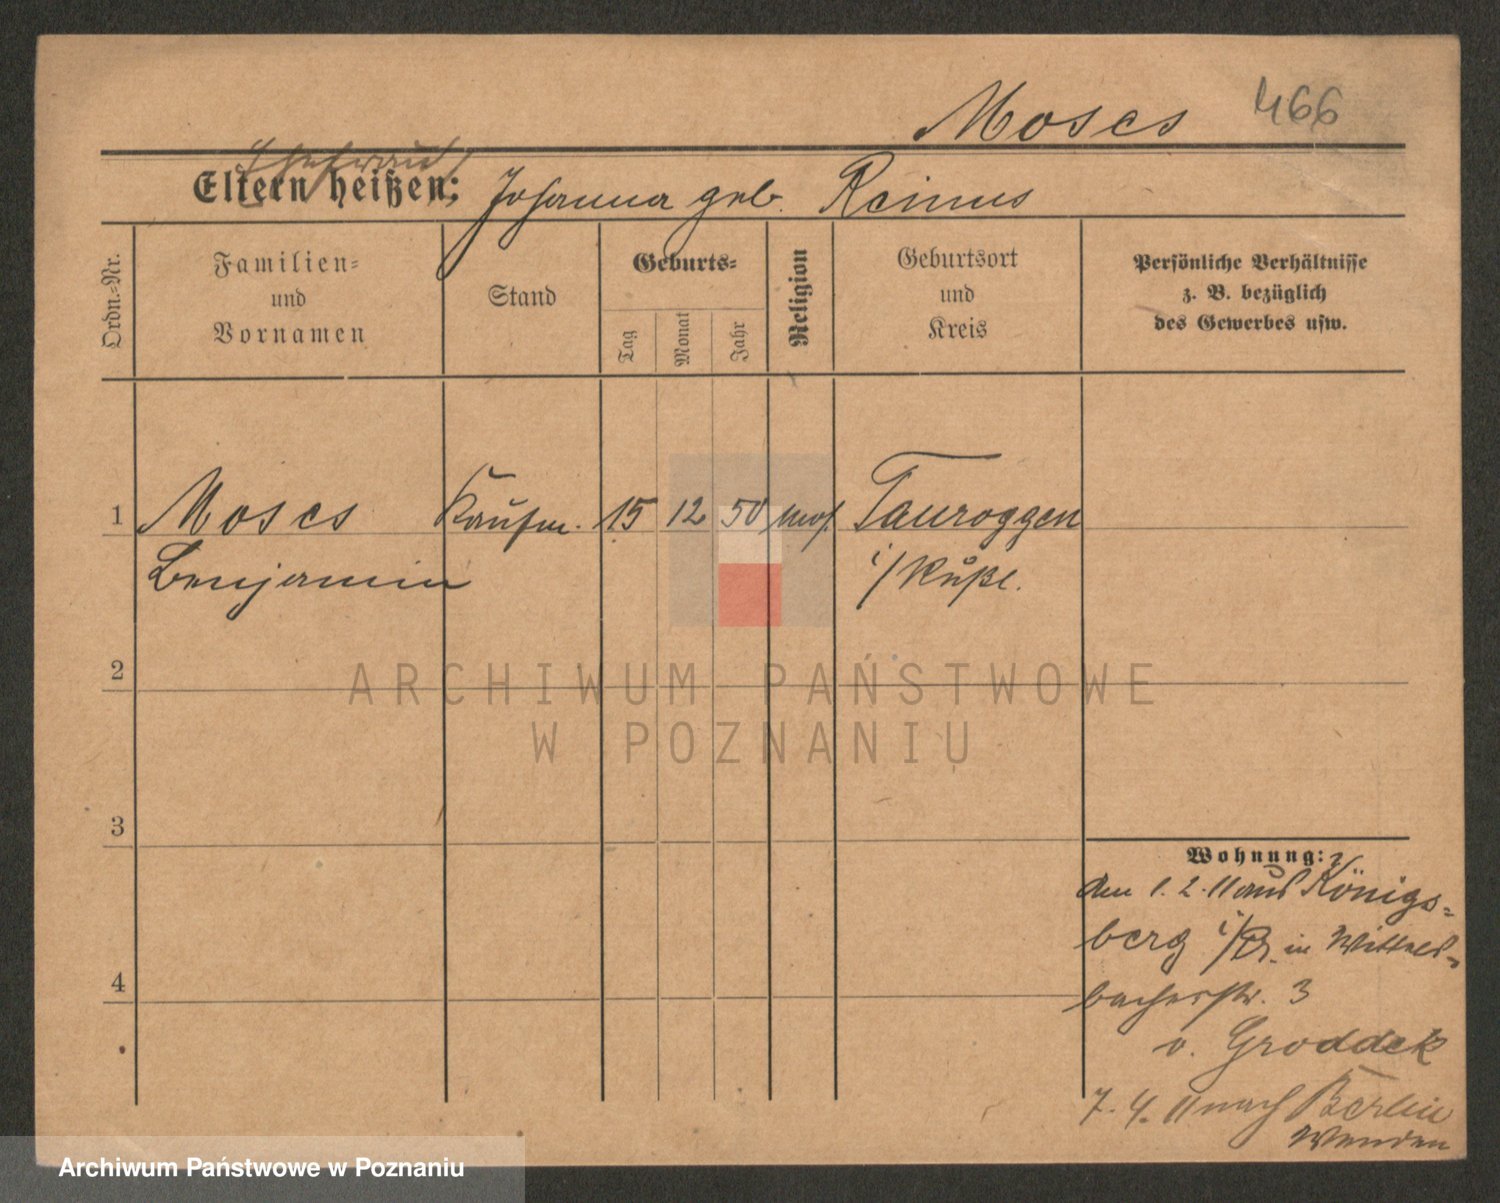 Moses 466
Ehefrau
Eltern heißen: Johanna geb. Reimus
Ordn.-Nr.
Familien-
und
Vornamen
Stand
Geburts-
Tag
Monat
Jahr
Religion
Geburtsort
und
Kreis
Persönliche Verhältnisse
z. B. bezüglich
des Gewerbes usw.
1 Moses Kaufm. 15 12 50 mos. Tauroggen
Benjamin i/Rußl.
2
3
4
Wohnung:
den 1. 2. 11 aus Königs-
berg i/Pr. in Wittels-
bacherstr. 3
v. Groddek
7. 4. 11 nach Berlin
ARCHIWUM PAŃSTWOWE
W POZNANIU
Archiwum Państwowe w Poznaniu